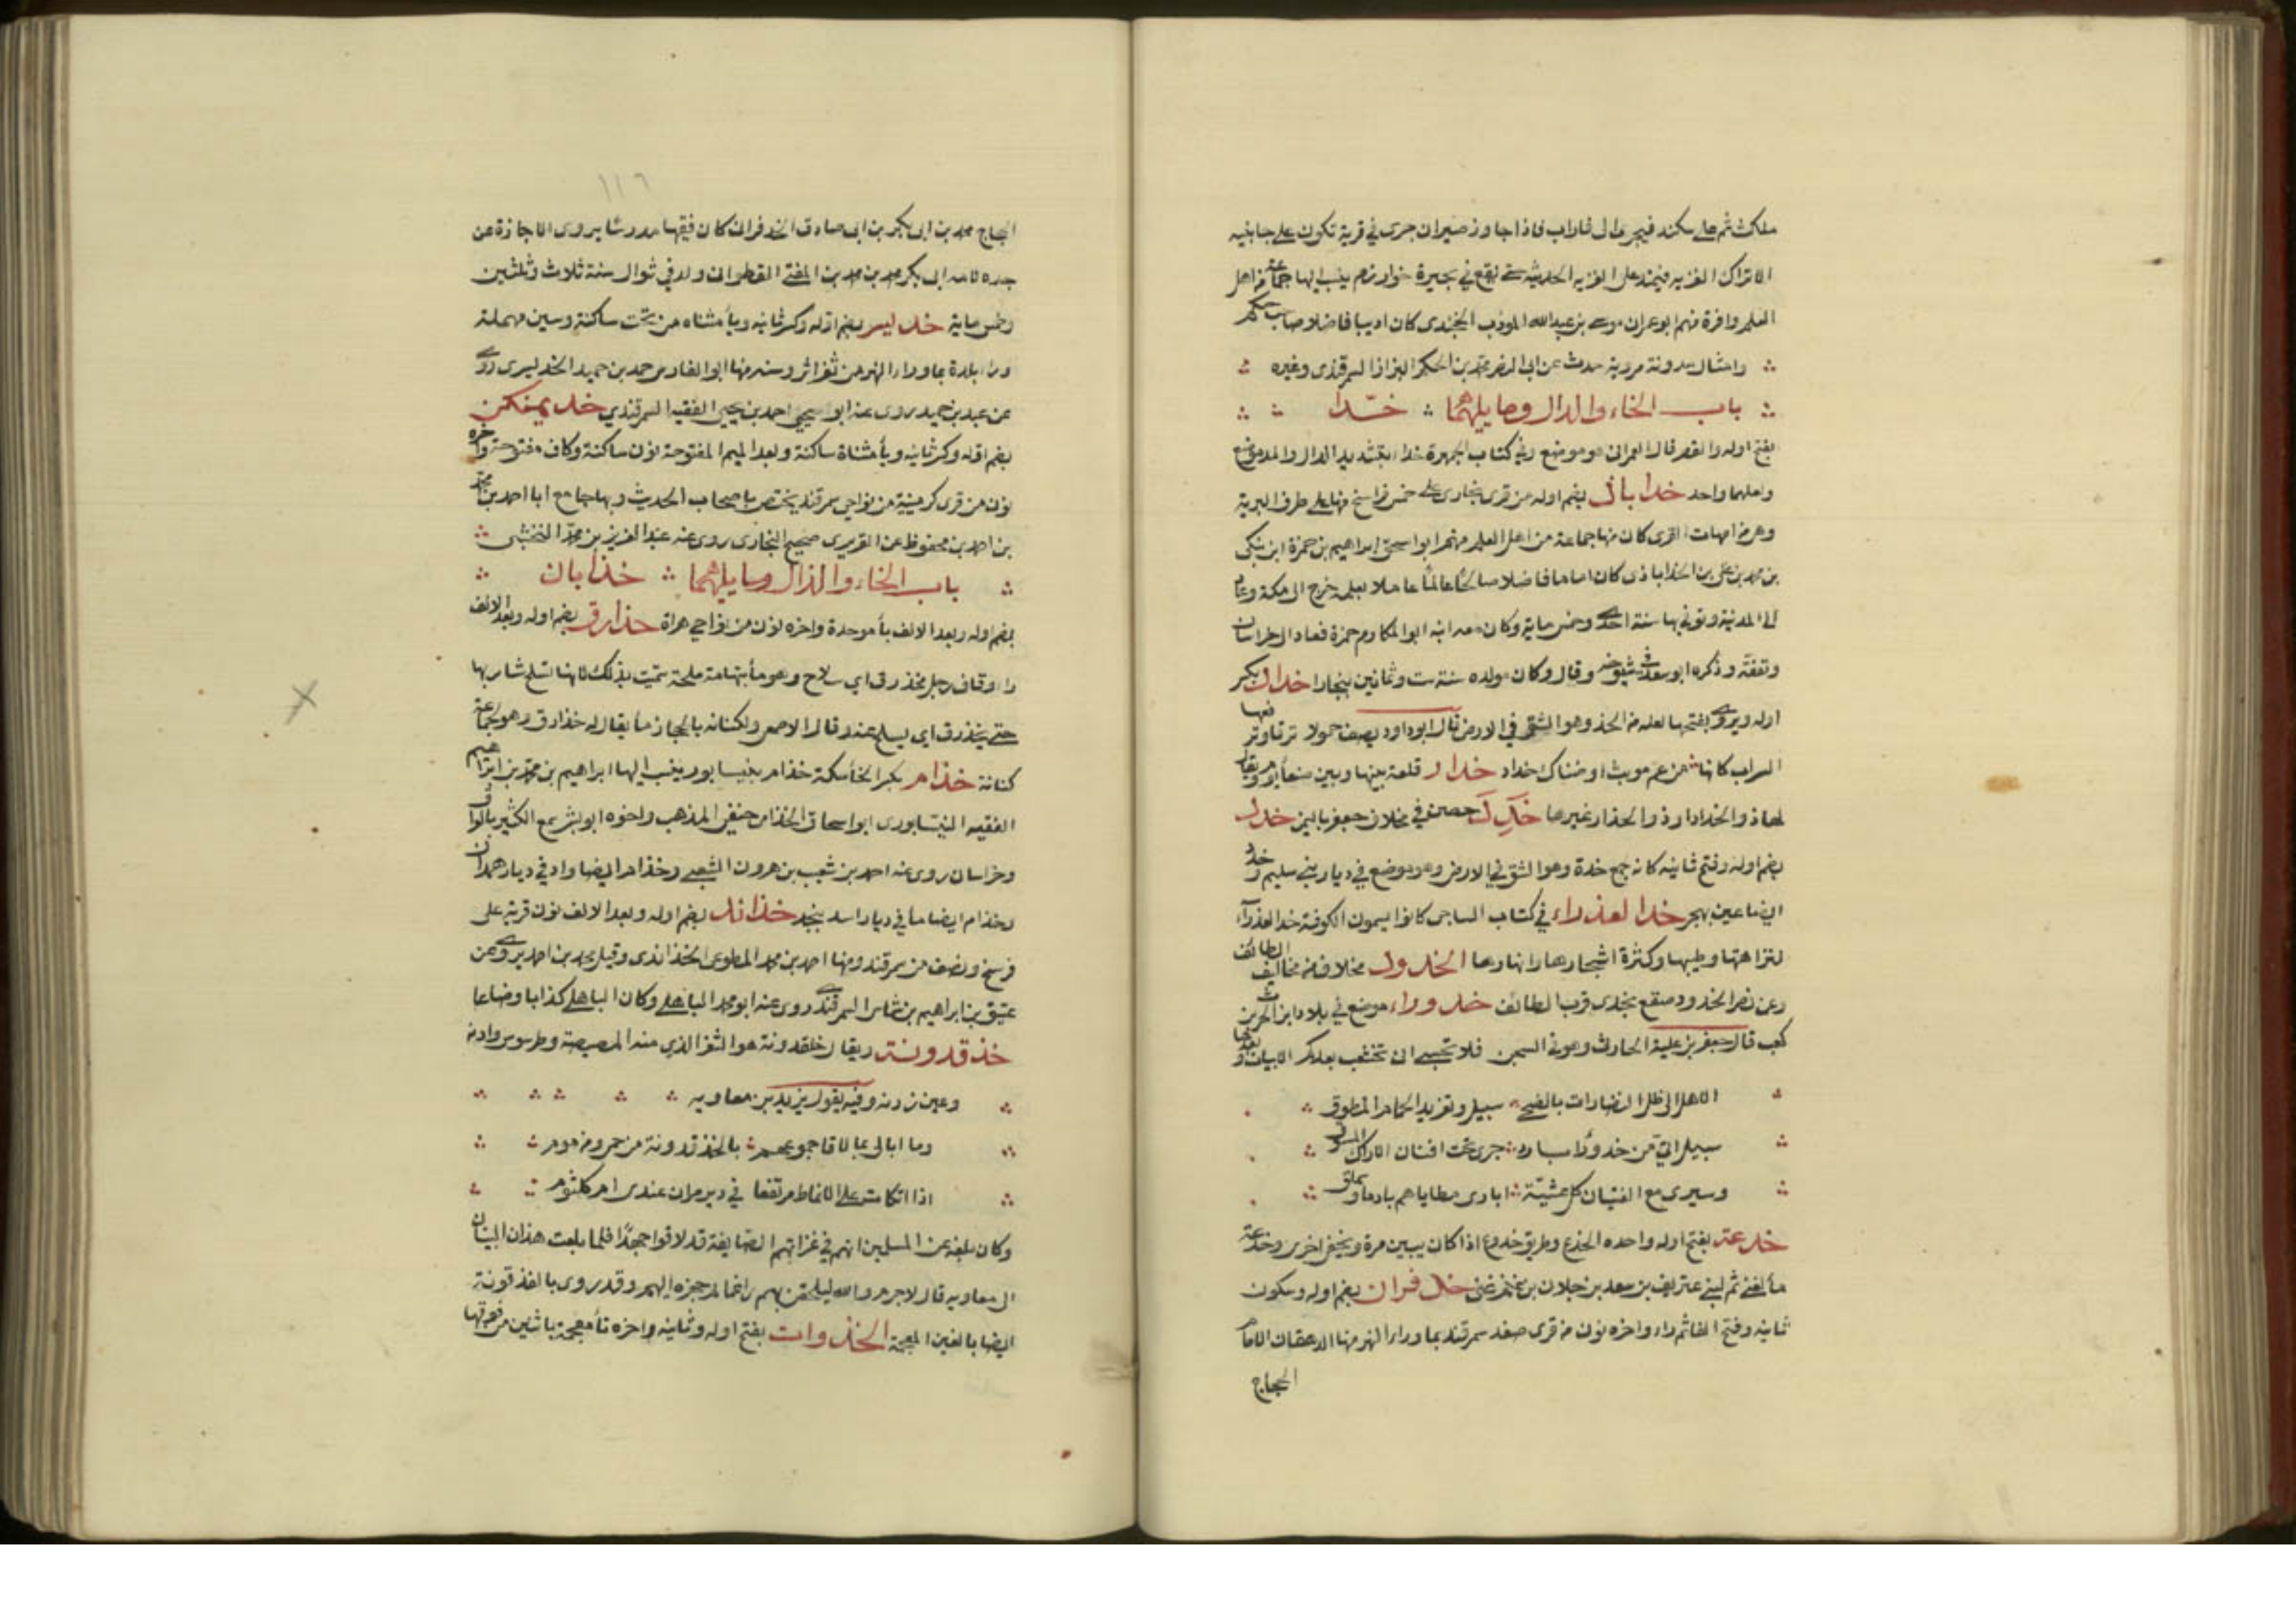 ملكث ثم على سكند فيجى الى فاراب فاذا جاوز صيران جرى في قرية تكون على جانبيه
الاتراك الغزيه فيمتد على الغزيه الحديثة حتى يقع في بحيرة خوارزم ينسب اليها جماعة من اهل
العلم وافرة منهم ابو عمران موسى بن عبدالله المودب الخجندى كان اديبا فاضلا صاحب حكم
وامثال مدونة مروية حدث عن ابى النضر محمد بن الحكم البزاز السمرقندى وغيره
باب الخاء والدال وما يليهما خدا
بفتح اوله والقصر قال العمرانى هو موضع وفي كتاب الجمهرة خداء بتشديد الدال والمد موضع
ولعلهما واحد خداباذ بضم اوله من قرى بخارى على خمس فراسخ منها على طرف البرية
وهى من امهات القرى كان منها جماعة من اهل العلم منهم ابو اسحق ابراهيم بن حمزة ابن ينكى
بن محمد بن على بن الخداباذى كان اماما فاضلا صالحا عالما عاملا بعلمه خرج الى مكة وعاد
الى المدينة وتوفي بها سنة احدى وخمس ماية وكان معه ابنه ابو المكارم حمزة فعاد الى خراسان
وتفقه وذكره ابو سعد في شيوخه وقال وكان مولده سنة ست وثمانين ببخارا خداد بكسر
اوله ويروى بفتحها لعله من الخد وهو الشق في الارض قال ابو داود يصف حمولا ترقا وترفعها
السراب كانها من عم موبث او ضناك خداد خدار قلعة بينها وبين صنعا يوم ويقال
لها ذو الخدار وذو الجدار غيرها خدد حصن في مخلاف جعفر باليمن خدد
بضم اوله وفتح ثانيه كانه جمع خدة وهو الشق في الارض وهو موضع في ديار بني سليم وخدد
ايضا عين بهجر خدا لعذراء في كتاب الساجى كانوا يسمون الكوفة خد العذرآء
لنزاهتها وطيبها وكثرة اشجارها وانهارها الخدود مخلاف من مخاليف الطائف
وعن نصر الخدود صقع نجدى قرب الطائف خدوراء موضع في بلاد ابن الحرث بن
كعب قال جعفر بن علبة الحارثى وهو في السجن فلا تحسبى ان تخشعت بعدكم الابيات وبعدها
الا هل الى ظل النضارات بالضحى سبيل وتغريد الحمام المطوق
سبيل الىّ من خدوراء بارد جرى تحت افنان الاراك المسوق
وسيرى مع الفتيان كل عشية ابارى مطاياهم بادماء سملق
خدعة بفتح اوله واحده الخدع وطريق خدوع اذا كان يبين مرة ويخفى اخرى وخدعة
مآ لغنى ثم لبني عتريف بن سعد بن جلان بن غنم بن غنى خدفران بضم اوله وسكون
ثانيه وفتح الفا ثم راء واخره نون من قرى صغد سمرقند بما وراء النهر منها الدهقان الامام
الحجاج
١١٦
الحجاج محمد بن ابى بكر بن ابى صادق الخدفرانى كان فقيها مدرسا يروى بالاجازة عن
جده لامه ابى بكر محمد بن محمد بن المفتى القطوانى ولد في شوال سنة ثلاث وثلثين
وخمس ماية خديسر بضم اوله وكسر ثانيه ويآ مثناه من تحت ساكنة وسين مهملة
وراء بلدة بما وراء النهر من ثغور اشروسنه منها ابو الفارس حمد بن حميد الخديسرى روى
عن عبد بن حميد روى عنه ابو يحيى احمد بن يحيى الفقيه السمرقندي خديمنكن
بضم اوله وكسر ثانيه ويآ مثناة ساكنة وبعد الميم المفتوحة نون ساكنة وكاف مفتوحة واخره
نون من قرى كرمينية من نواحي سمرقند يختص باصحاب الحديث وبها جامع ابا احمد بن محمد
بن احمد بن محفوظ عن الفربرى صحيح البخارى روى عنه عبد العزيز بن محمد النخشبى
باب الخاء والذال وما يليهما خذابان
بضم اوله وبعد الالف بآ موحدة واخره نون من نواحي هراة خذارق بضم اوله وبعد الالف
را وقاف رجل مخذرق اي سلاح وهو مآ بتهامة ملحة سميت بذلك لانها تسلح شاربها
حتى يخذرق اي يسلح عنه وقال الاصمعى ولكنانه بالحجاز مآ يقال له خذارق وهو لجماعة
كنانة خذام بكسر الخآ سكة خذام بنيسابور ينسب اليها ابراهيم بن محمد بن ابراهيم
الفقيه النيسابورى ابو اسحاق الخذامى حنفى المذهب واخوه ابو بشر سمع الكثير بالعراق
وخراسان روى عنه احمد بن شعيب بن هرون الشعبى وخذام ايضا واد في ديار همدان
وخذام ايضا مآ في ديار اسد بنجد خذاند بضم اوله وبعد الالف نون قرية على
فرسخ ونصف من سمرقند ومنها احمد بن محمد المطوعى الخذاندى وقيل محمد بن احمد يروى عن
عتيق بن ابراهيم بن شماس السمرقندى روى عنه ابو محمد الباهلى وكان الباهلى كذابا وضاعا
خذقدونة ويقال خلقدونة هو الثغر الذى منه المصيصة وطرسوس واذنه
وعين زربه وفيه يقول يزيد بن معاويه
وما ابالى بما لاقا جموعهم بالخذقدونة من حمى ومن موم
اذا اتكات على الانماط مرتفعا في دير مران عندى ام كلثوم
وكان بلغه عن المسلمين انهم في غزاتهم الصايفة قد لاقوا جهدا فلما بلغت هذان البيتان
الى معاويه قال لا جرم والله ليلحقن بهم راغما ثم جهزه اليهم وقد روى بالغذقدونة
ايضا بالغين المعجمة الخذوات بفتح اوله وثانيه واخره تآ معجمة باثنين من فوقها